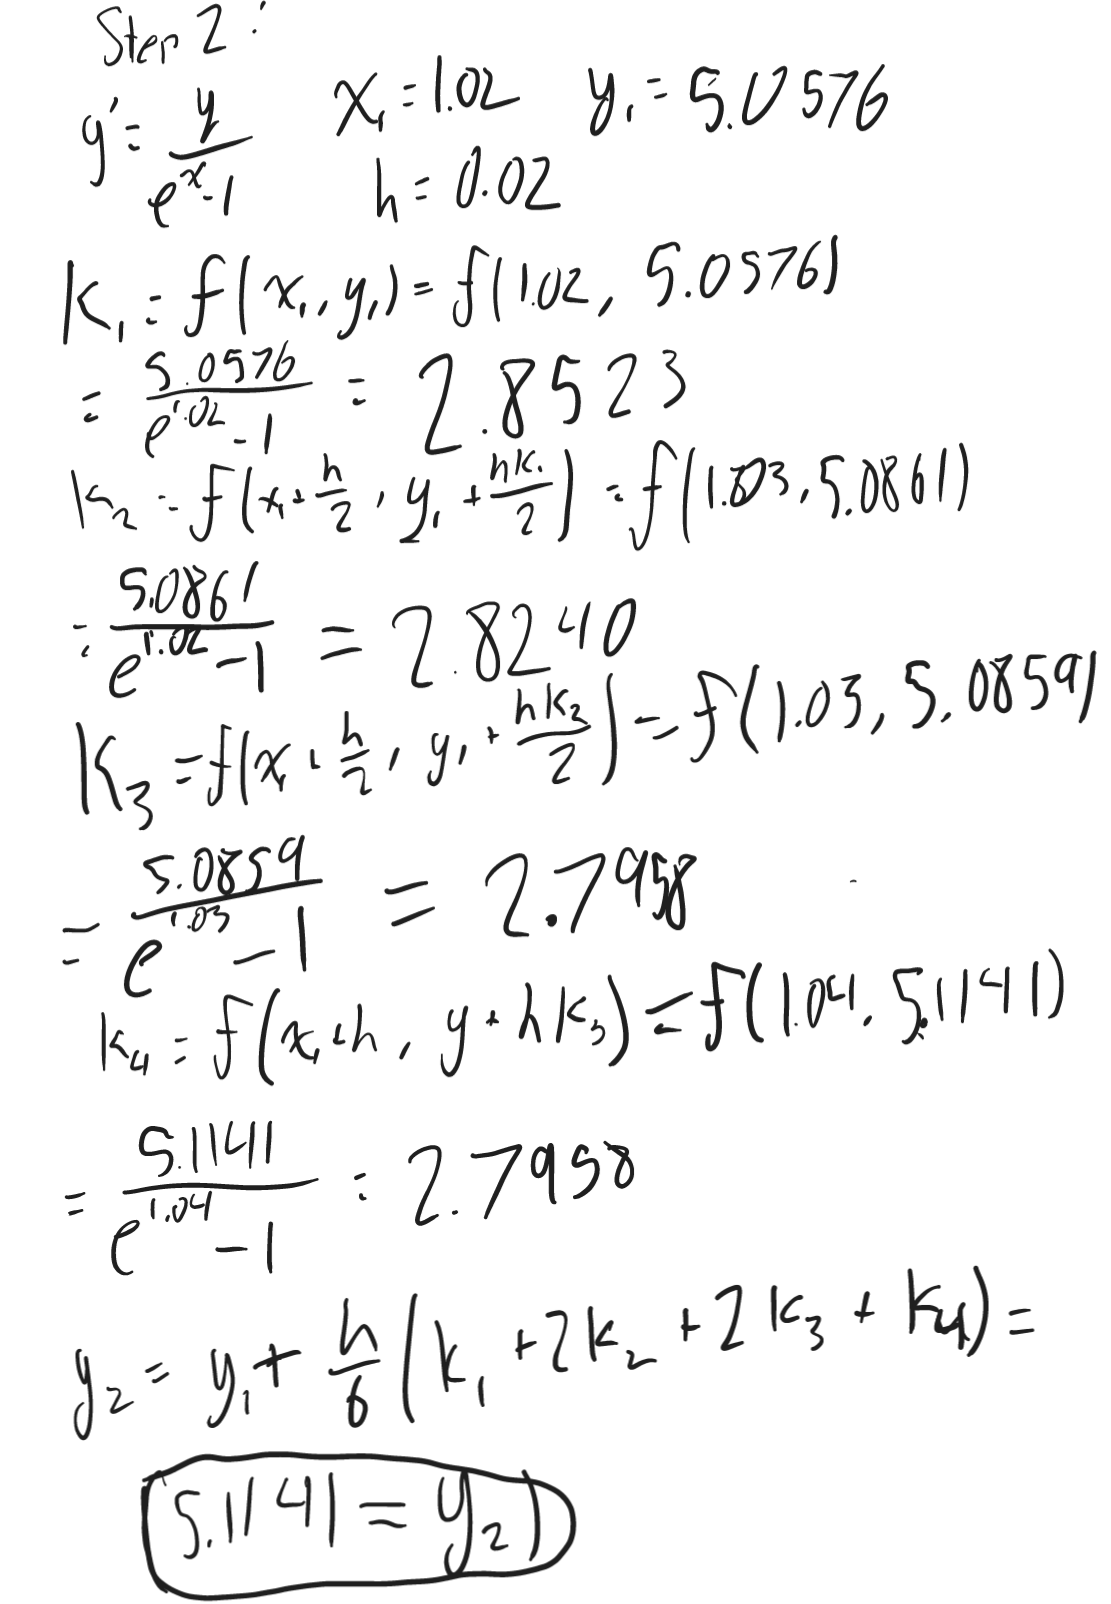 Step 2:
y' = y/(e^x - 1)   x₁ = 1.02   y₁ = 5.0576
h = 0.02
K₁ = f(x₁, y₁) = f(1.02, 5.0576)
= 5.0576/(e^1.02 - 1) = 2.8523
k₂ = f(x₁ + h/2, y₁ + hk₁/2) = f(1.03, 5.0861)
= 5.0861/(e^1.02 - 1) = 2.8240
K₃ = f(x₁ + h/2, y₁ + hk₂/2) = f(1.03, 5.0859)
= 5.0859/(e^1.03 - 1) = 2.7958
k₄ = f(x₁ + h, y + hk₃) = f(1.04, 5.1141)
= 5.1141/(e^1.04 - 1) = 2.7958
y₂ = y₁ + h/6 (k₁ + 2k₂ + 2k₃ + k₄) =
5.1141 = y₂)